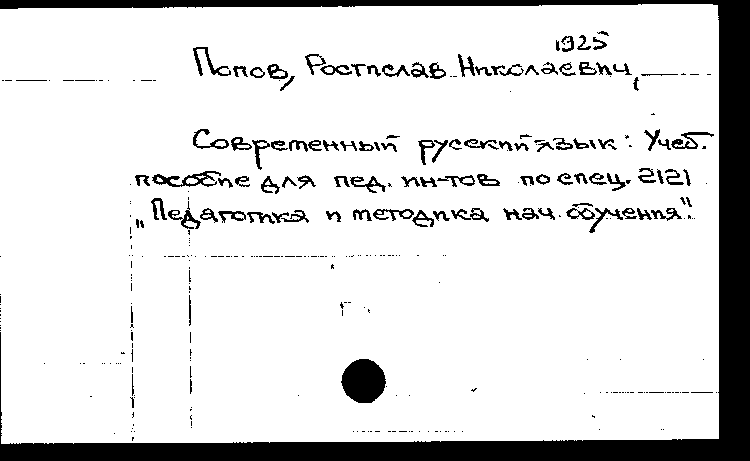 1925
Попов, Ростислав Николаевич,
Современный русский язык: Учеб.
пособие для пед. ин-тов по спец. 2121
„Педагогика и методика нач. обучения".